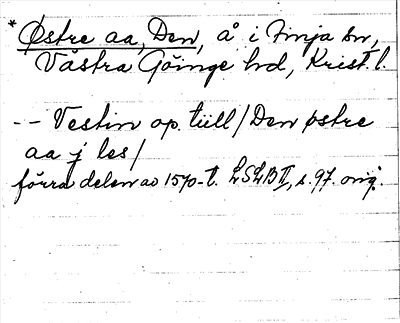 * Østre aa, Den, å i Finja sn,
Västra Göinge hd, Krist. l.
-- Vestin op. tiill / Den østre
aa j les /
förra delen av 1570-t. LSLB II, s. 97. orig.